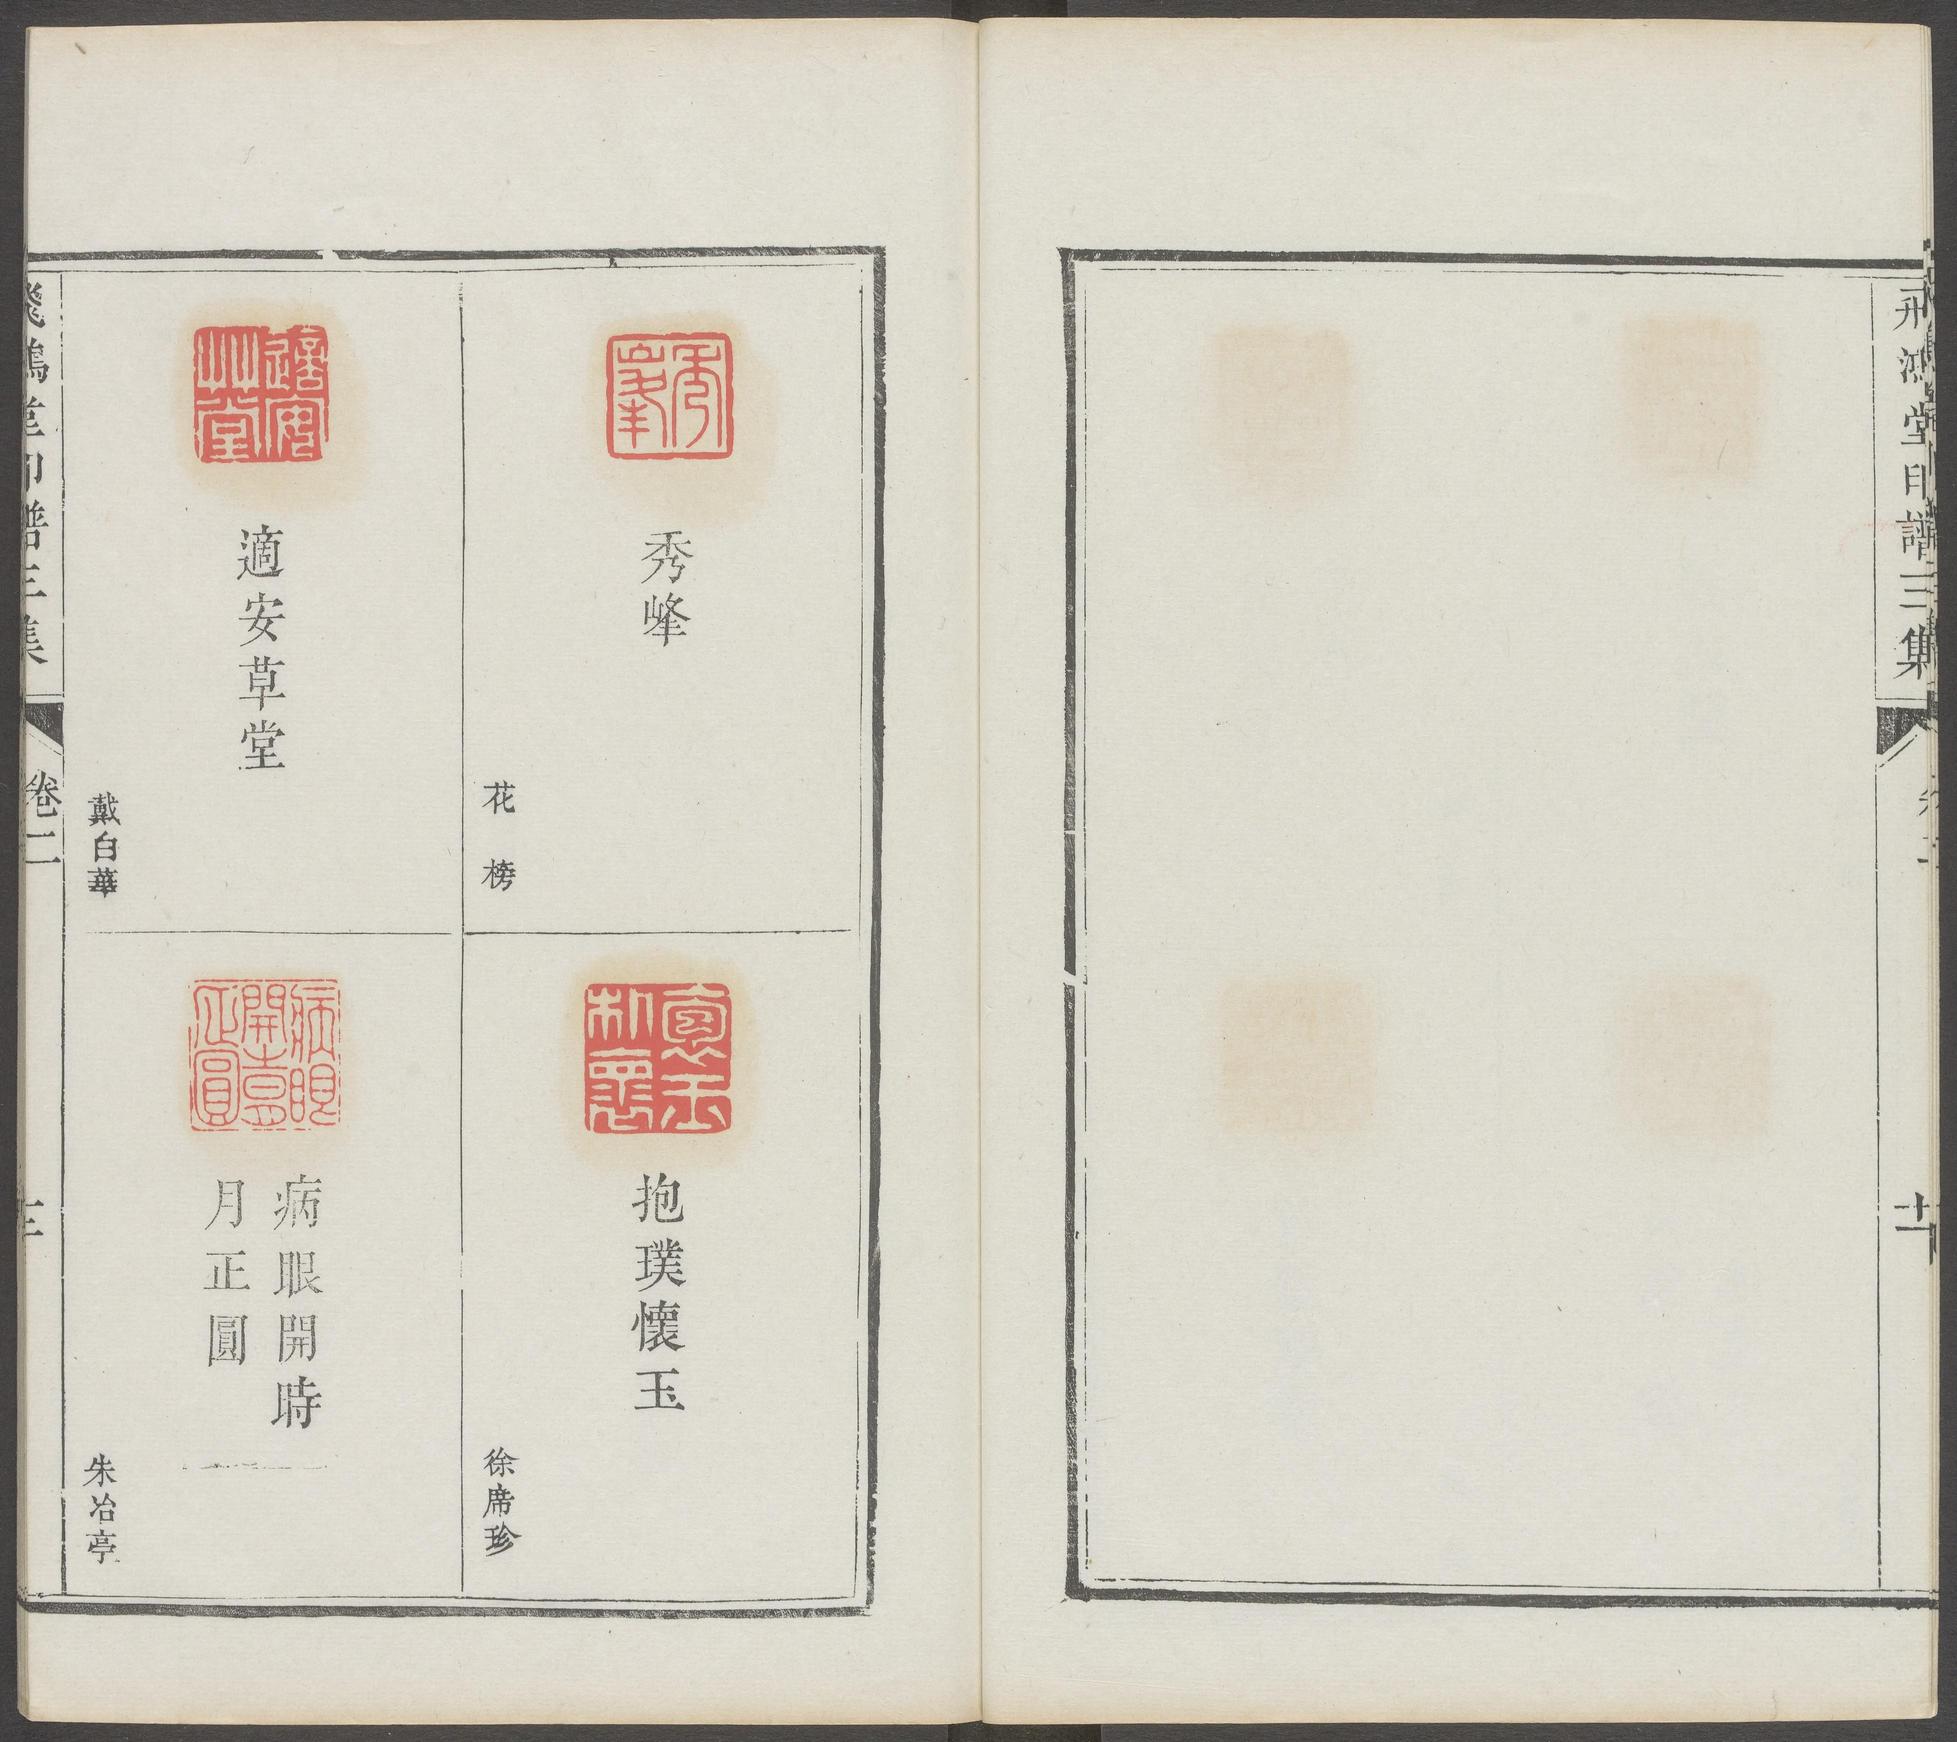 飛鴻堂印譜三集
秀峰
花榜
抱璞懷玉
徐席珍
適安草堂
戴白華
病眼開時
月正圓
朱冶亭
飛鴻堂印譜三集
卷二